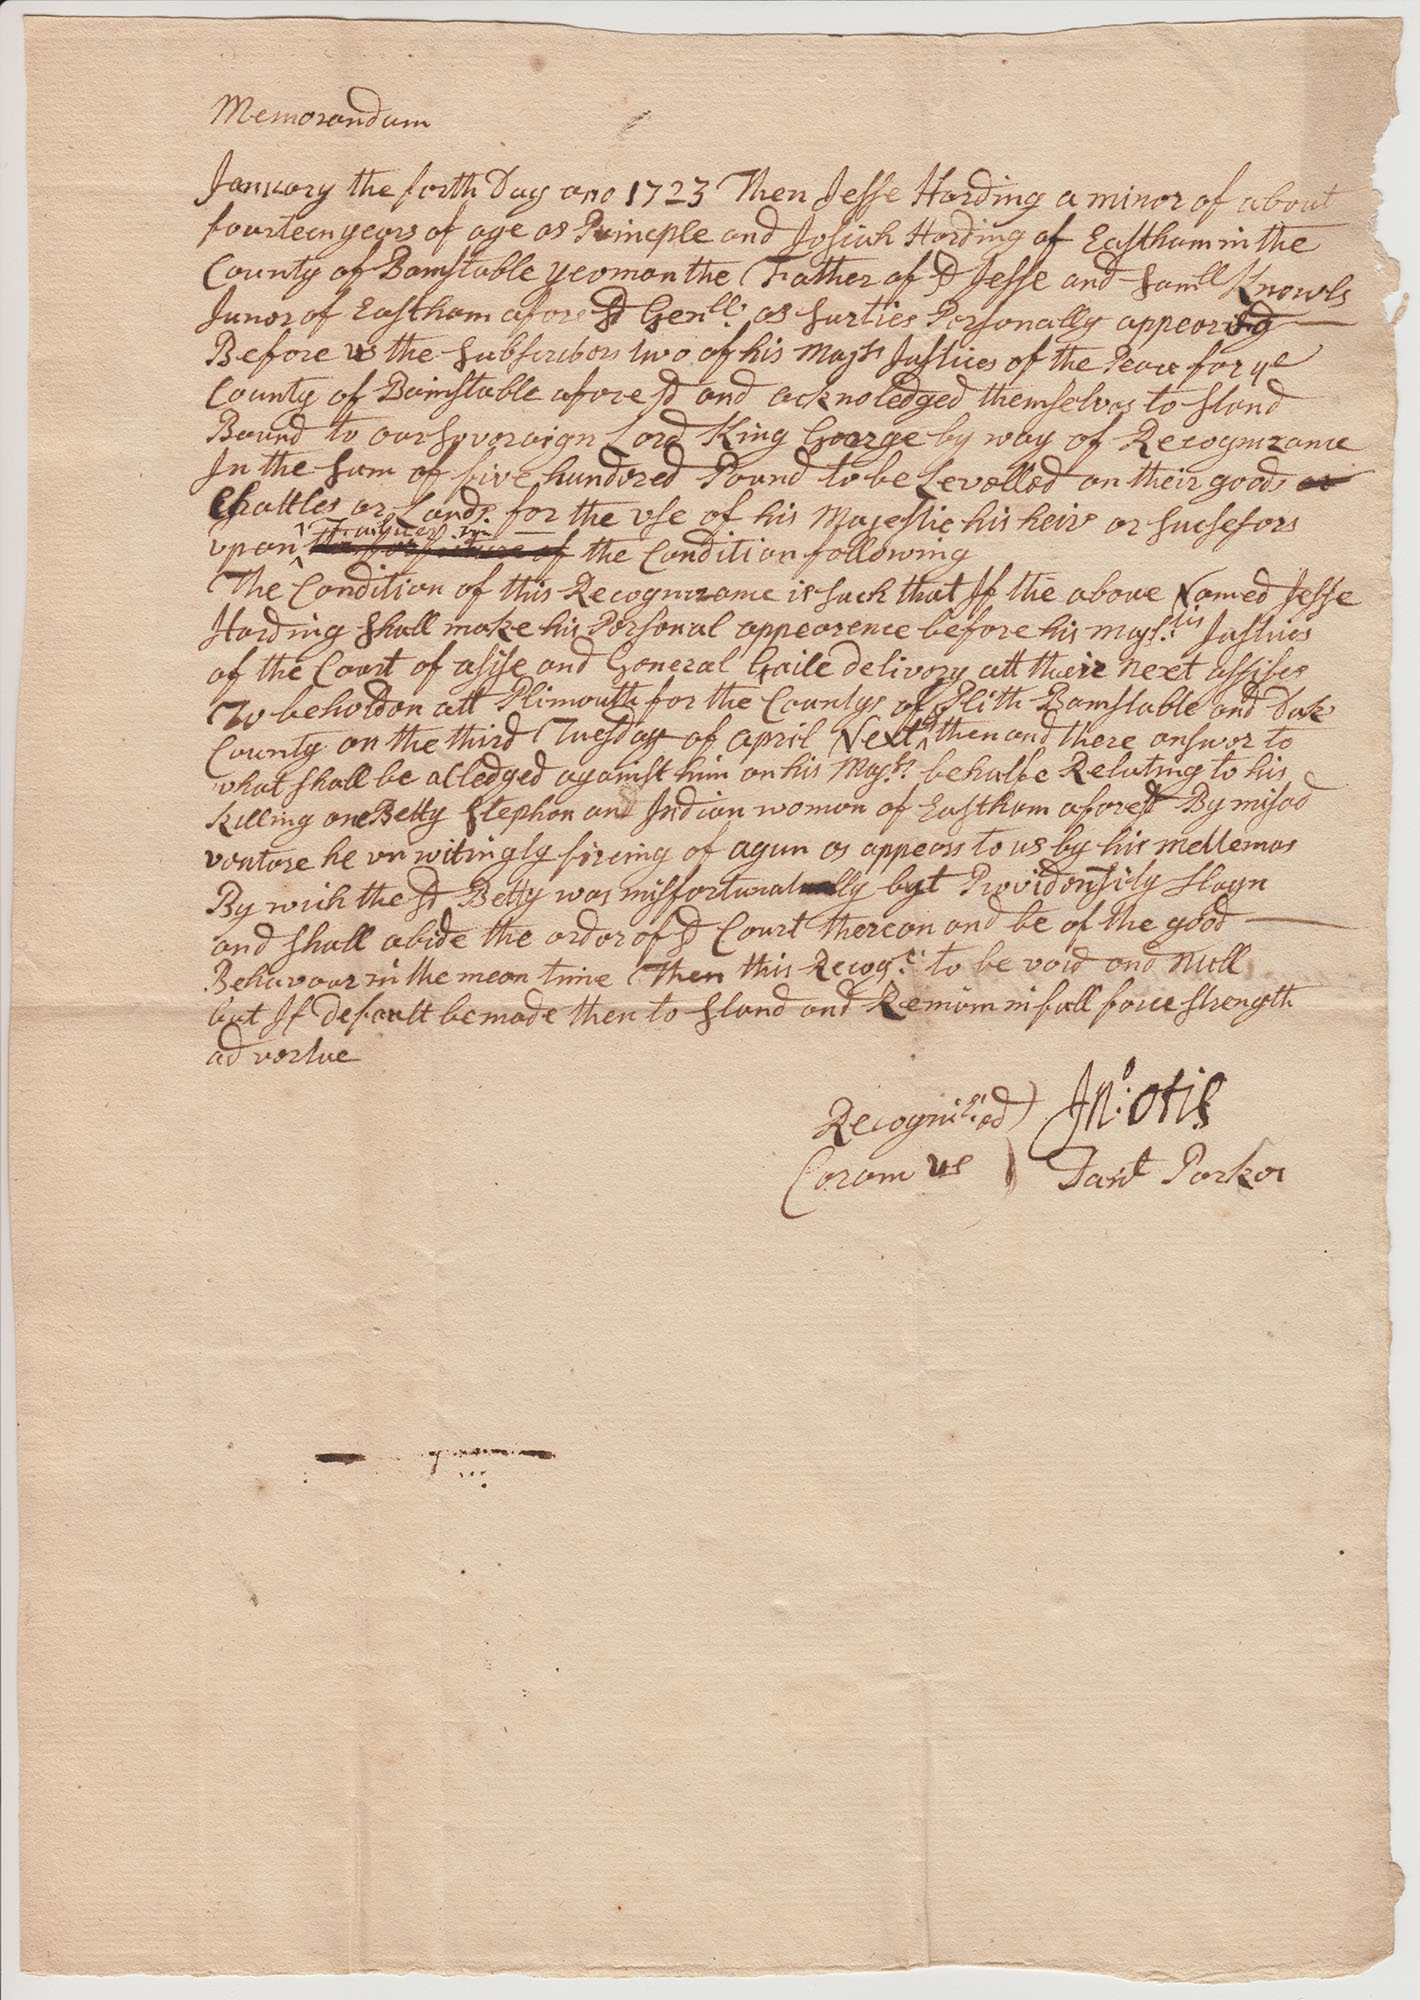 Memorandum
January the forth Day ano 1723 Then Jesse Harding a minor of about
fourteen years of age as Principle and Josiah Harding of Eastham in the
County of Barnstable yeoman the Father of sd Jesse and Samll Knowls
Junor of Eastham afore sd Genll: as surties Personally appearing
Before us the subscribors two of his Majts Justices of the Peace for ye
County of Barnstable afore sd and acknoledged themselves to stand
Bound to our Sovoraign Lord King George by way of Recognizance
In the sum of five hundored Pound to be Levelled on their goods or
Chattles or Lands for the use of his Majestie his heirs or sucsesors
upon Failuer in the forfiture of the Condition following
The Condition of this Recognizance is such that If the above Named Jesse
Harding shall make his Personal appearence before his Majstis Justices
of the Court of asise and General Gaile delivory att their next assises
To be holdon att Plimouth for the Countys of Plith Barnstable and Duks
County on the third Tuesday of april Next & then and there answor to
what shall be alledged against him on his Majts behalfe Relating to his
killing one Betty Stephon an Indian woman of Eastham aforesd By misad
vontore he unwitingly fireing of a gun as appears to us by his
By wich the sd Betty was misfortunatually byt Providonsily slayn
and shall abide the ordor of sd Court thereon and be of the good
Behavour in the mean time Then this Recogs: to be void and Null
but If default be made then to stand and Remain in full force strength
ad vortue
Recognised ) Jno: Otis
Coram us ) Danl Parkor